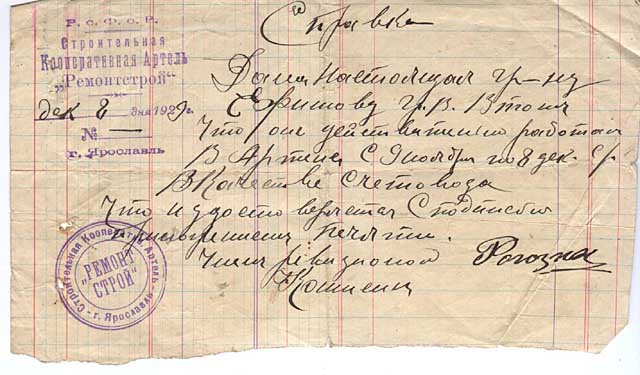 Р. С. Ф. С. Р.
Строительная
Кооперативная Артель
„Ремонтстрой“
дек 8 дня 1929 г.
№ —
г. Ярославль
Справка
Дана настоящая гр-ну
Ефимову Гр. В. в том
что он действительно работал
в Артели с 9 ноября по 8 дек. с/г
в качестве счетовода
что и удостоверяется с подписью
и приложением печати.
Член Ревизионой
Комиссии
Строительная Кооперат. Артель
„РЕМОНТ
СТРОЙ“
г. Ярославль